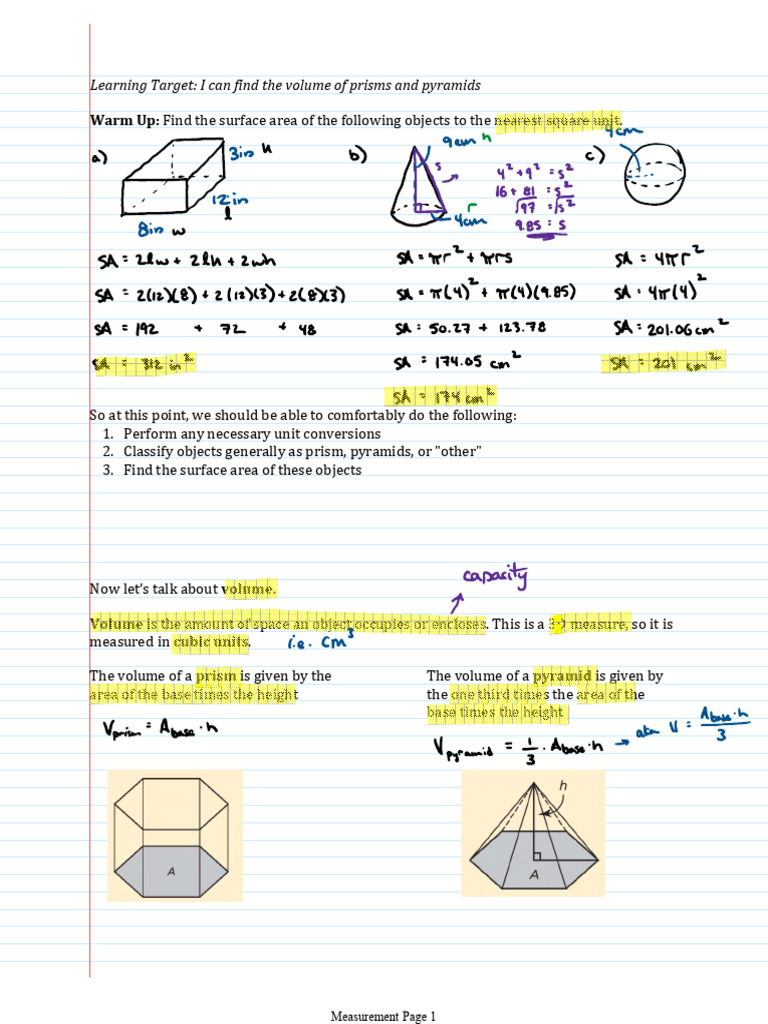 Learning Target: I can find the volume of prisms and pyramids
Warm Up: Find the surface area of the following objects to the nearest square unit.
a) 3in h
12in
l
8in w
b) 9cm h
s
r
4cm
4² + 9² = s²
16 + 81 = s²
√97 = √s²
9.85 = s
c) 4cm
SA = 2lw + 2lh + 2wh
SA = 2(12)(8) + 2(12)(3) + 2(8)(3)
SA = 192 + 72 + 48
SA = 312 in²
SA = πr² + πrs
SA = π(4)² + π(4)(9.85)
SA = 50.27 + 123.78
SA = 174.05 cm²
SA = 174 cm²
SA = 4πr²
SA = 4π(4)²
SA = 201.06 cm²
SA = 201 cm²
So at this point, we should be able to comfortably do the following:
1. Perform any necessary unit conversions
2. Classify objects generally as prism, pyramids, or "other"
3. Find the surface area of these objects
capacity
Now let's talk about volume.
Volume is the amount of space an object occupies or encloses. This is a 3-D measure, so it is
measured in cubic units. i.e. cm³
The volume of a prism is given by the
area of the base times the height
V prism = A base · h
The volume of a pyramid is given by
the one third times the area of the
base times the height
V pyramid = 1/3 · A base · h → aka V = A base · h / 3
A
h
A
Measurement Page 1